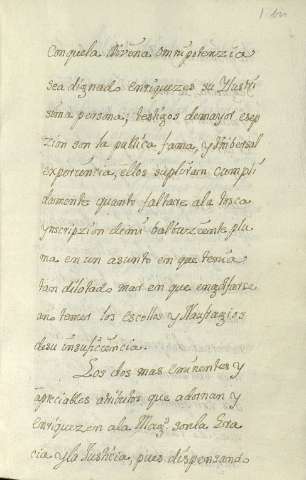 1 bis
Conquela Divina omnipotenzia
sea dignado enriquezer su Ylustri
sima persona; testigos demayor exep
zion son la publica fama, y Vniversal
experiencia, ellos supliran cumpli
damente quanto faltare ala tosca
ynscripzion demi balbuziente plu
ma en un asunto en que tenia
tan dilatado mar en que engolfarse
ano temer los escollos y Naufragios
desu insuficiencia.
Los dos mas eminentes y
apreciables atributos que adornan y
enriquezen ala Mag.^d son la Gra
cia y la Justicia, pues dispensando